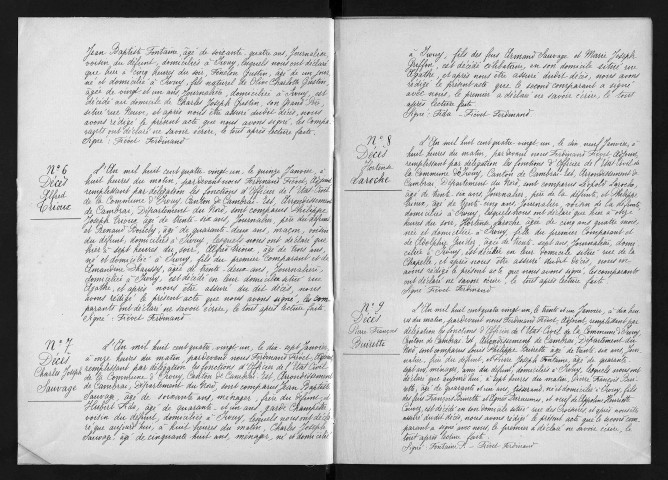 Jean Baptiste Fontaine, âgé de soixante quatre ans, Journalier,
voisin du défunt, domiciliés à Iwuy, lesquels nous ont déclaré
que hier à cinq heures du soir, Gustin, âgé de un jour,
né et domicilié à Iwuy, fils naturel de Charlotte Gustin,
âgée de vingt et un ans Journalière, domiciliée à Iwuy, est
décédé au domicile de Charles Joseph Gustin, son Grand Père
situé rue Neuve, et après nous être assuré dudit décès, nous
avons rédigé le présent acte que nous avons signé, les compa
rants ont déclaré ne savoir écrire, le tout après lecture faite.
Signé: Fievet Ferdinand
N° 6
Décès
Alfred
L'An mil huit cent quatre vingt-un, le quinze Janvier, à
huit heures du matin, par devant nous Ferdinand Fievet, Adjoint,
remplissant par délégation les fonctions d'Officier de l'Etat Civil
de la Commune d'Iwuy, Canton de Cambrai Est, Arrondissement
de Cambrai, Département du Nord, sont comparus Philippe
Joseph, âgé de trente six ans, Journalier, père du défunt
et Renaud, âgé de quarante deux ans, maçon, voisin
du défunt, domiciliés à Iwuy, lesquels nous ont déclaré que
hier à sept heures du soir, Alfred, âgé de trois ans,
né et domicilié à Iwuy, fils du premier comparant et de
Amandine, âgée de trente deux ans, Journalière,
domiciliée à Iwuy, est décédé en leur domicile situé rue
Agathe, et après nous être assuré du dit décès, nous avons
rédigé le présent acte que nous avons signé, les com
parants ont déclaré ne savoir écrire, le tout après lecture faite
Signé: Fievet Ferdinand
N° 7
Décès
Charles Joseph
Sauvage
L'An mil huit cent quatre vingt un, le dix sept Janvier,
à onze heures du matin, par devant nous Ferdinand Fievet, Adjoint,
remplissant par délégation les fonctions d'Officier de l'Etat Civil
de la Commune d'Iwuy, Canton de Cambrai Est, Arrondissement
de Cambrai, Département du Nord, sont comparus Jean Baptiste
Sauvage, âgé de soixante ans, ménager, père du défunt et
Hubert Fida, âgé de quarante et un ans, garde Champêtre
voisin du défunt, domiciliés à Iwuy, lesquels nous ont décla
ré que aujourd'hui, à huit heures du matin, Charles Joseph
Sauvage, âgé de cinquante huit ans, ménager, né et domicilié
à Iwuy, fils des feus Armand Sauvage et Marie Joseph
est décédé célibataire, en son domicile situé rue
Agathe, et après nous être assuré dudit décès, nous avons
rédigé le présent acte que le second comparant a signé
avec nous, le premier a déclaré ne savoir écrire, le tout
après lecture faite
Signé: Fida - Fievet Ferdinand
N° 8
Décès
Hortense
Laroche
L'An mil huit cent quatre vingt-un, le dix neuf Janvier, à
huit heures du matin, par devant nous Ferdinand Fievet, Adjoint,
remplissant par délégation les fonctions d'Officier de l'Etat Civil de
la Commune d'Iwuy, Canton de Cambrai Est, Arrondissement de
Cambrai, Département du Nord, sont comparus Laroche,
âgé de trente six ans Journalier, père de la défunte, et Philippe
âgé de vingt cinq ans, Journalier, voisin de la défunte,
domiciliés à Iwuy, lesquels nous ont déclaré que hier à onze
heures du soir, Hortense Laroche, âgée de cinq ans quatre mois,
née et domiciliée à Iwuy, fille du premier Comparant et
de Adolphine, âgée de trente sept ans Journalière, domi
ciliée à Iwuy, est décédée en leur domicile situé rue de la
Chapelle, et après nous être assuré dudit décès, nous a
vons rédigé le présent acte que nous avons signé, les comparants
ont déclaré ne savoir écrire, le tout après lecture faite.
Signé: Fievet Ferdinand.
N° 9
Décès
Pierre François
L'An mil huit cent quatre vingt un, le trente et un Janvier, à dix
heures du matin, par devant nous Ferdinand Fievet, Adjoint, remplissant par
délégation les fonctions d'Officier de l'Etat Civil de la Commune d'Iwuy,
Canton de Cambrai Est, Arrondissement de Cambrai, Département du
Nord, sont comparus Philippe, âgé de trente six ans, Jour
nalier, fils du défunt, et Joseph Fontaine, âgé de quarante
sept ans, ménager, ami du défunt, domiciliés à Iwuy, lesquels nous ont
déclaré que aujourd'hui, à sept heures du matin, Pierre François
âgé de quarante et un ans, né et domicilié à Iwuy,
fils des feus François et Agnès, et veuf de Appoline Henriette
est décédé en son domicile situé rue des et après nous être
assuré dudit décès, nous avons rédigé le présent acte que le second com
parant a signé avec nous, le premier a déclaré ne savoir écrire, le
tout après lecture faite.
Signé: Fontaine J. - Fievet Ferdinand